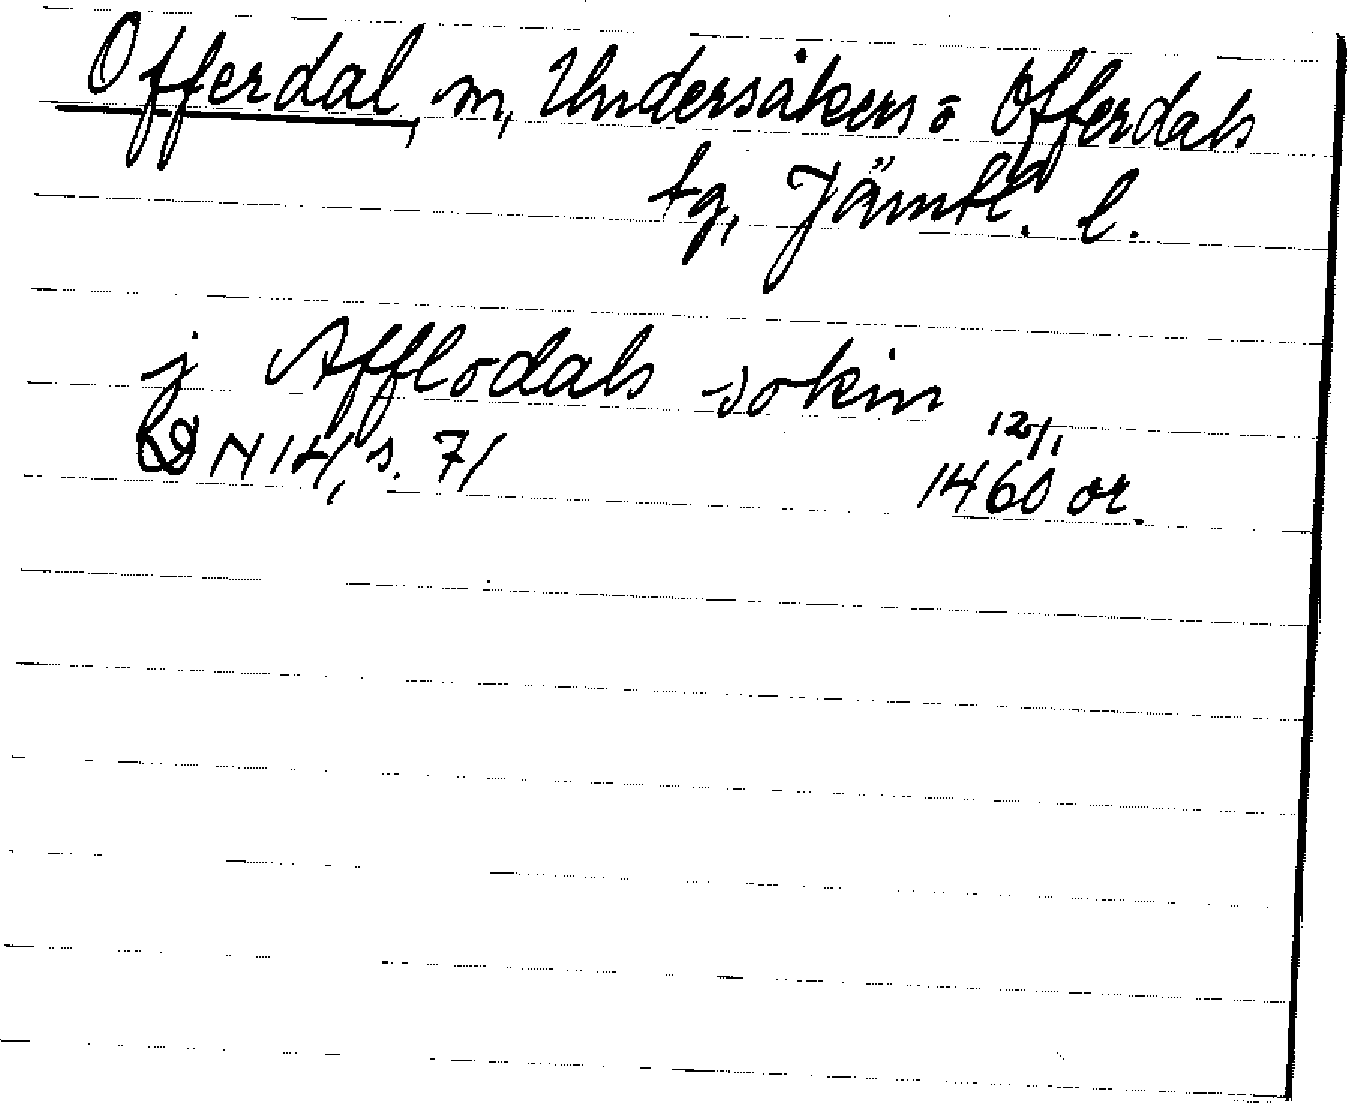 Offerdal, sn, Undersåkers o Offerdals
tg, Jämtl. l.
j Afflodals sokin
DN 14, s. 71
12/1
1460 or.